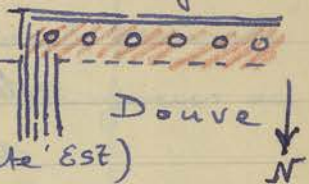 Douve
té Est)
N